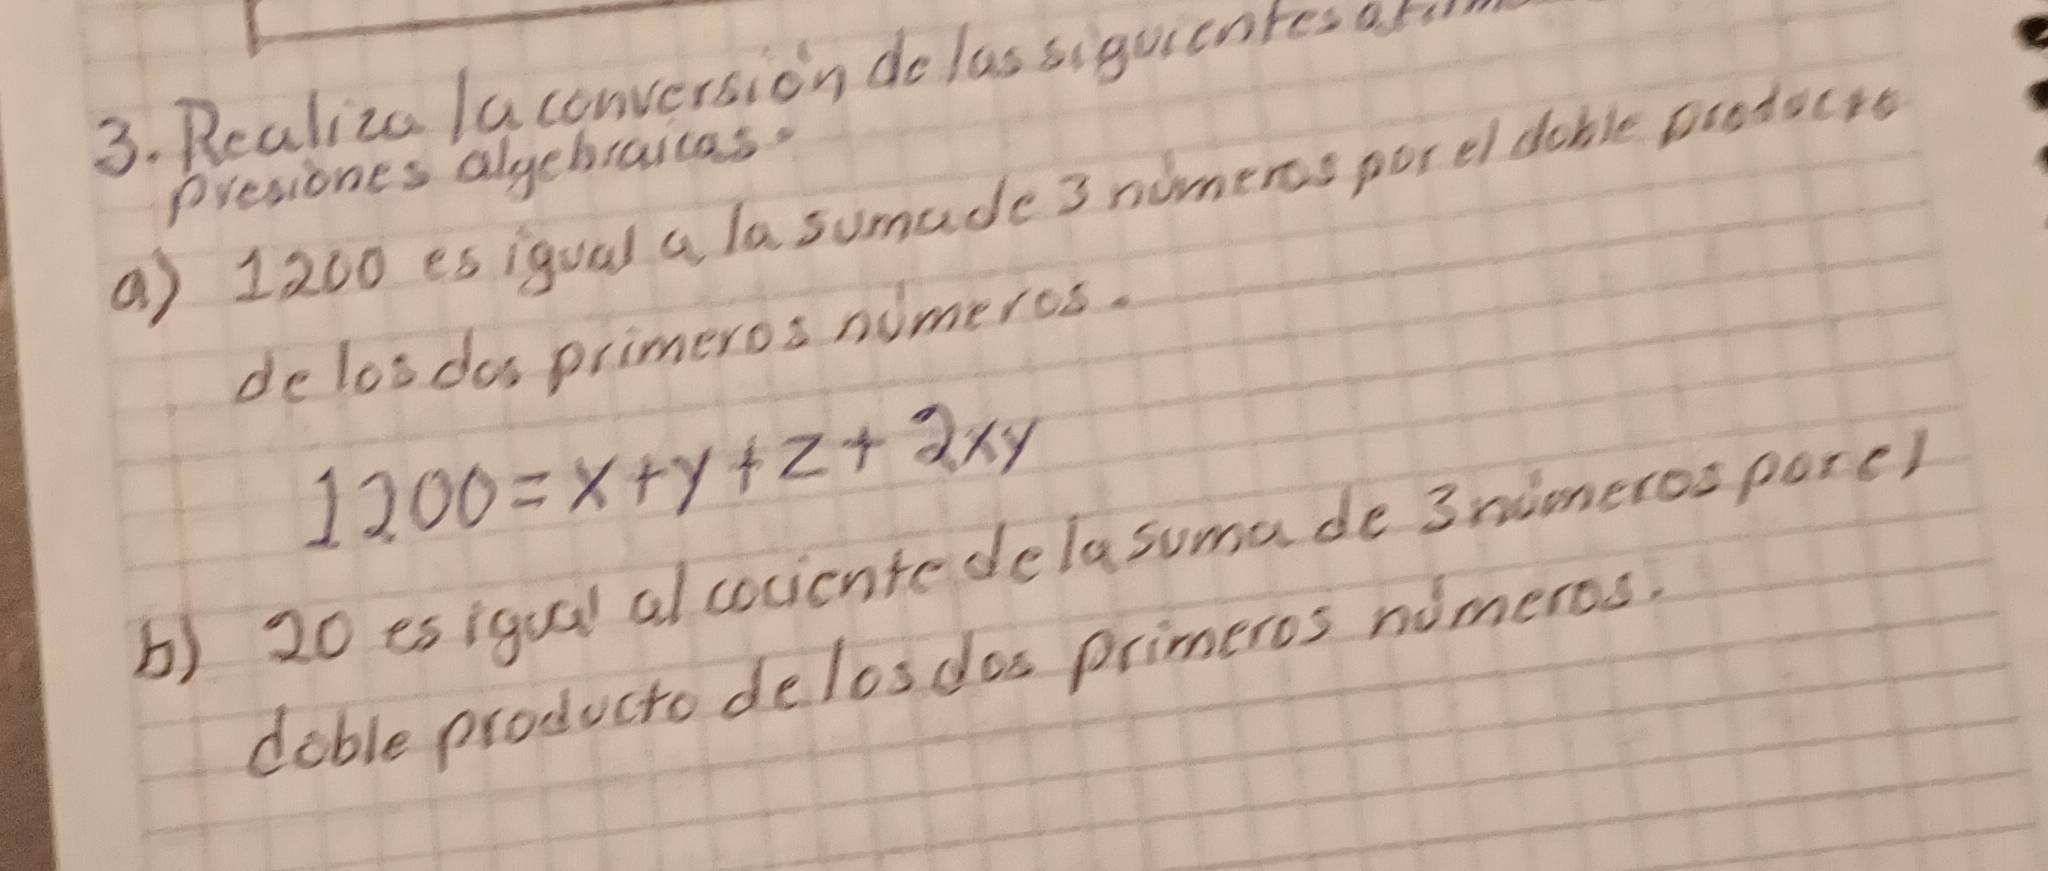 3. Realiza la conversión de las siguientes
presiones algebraicas.
a) 1200 es igual a la suma de 3 números por el doble producto
de los dos primeros números.
1200 = x + y + z + 2xy
b) 20 es igual al cociente de la suma de 3 números por el
doble producto de los dos primeros números.